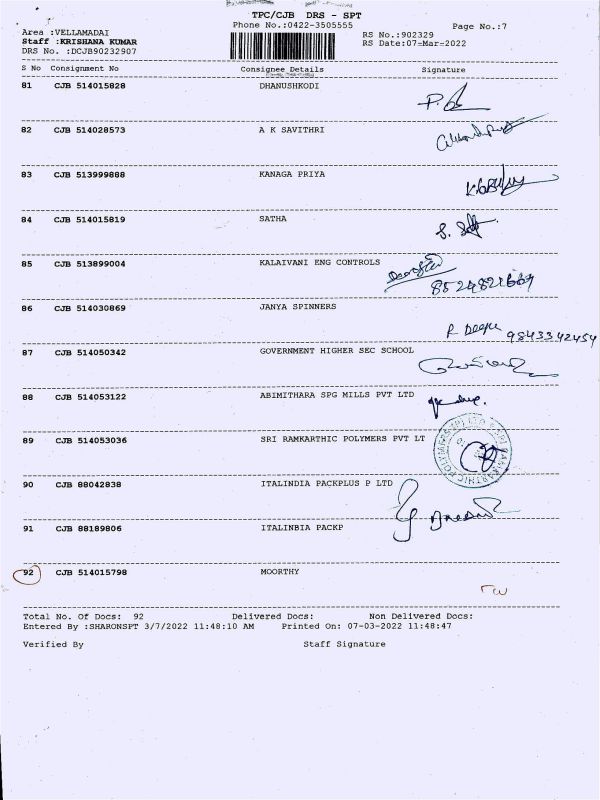 TPC/CJB DRS - SPT
Phone No.:0422-3505555
Page No.:7
Area :VELLAMADAI
RS No.:902329
Staff :KRISHANA KUMAR
RS Date:07-Mar-2022
DRS No. :DCJB90232907
S No Consignment No Consignee Details Signature
81 CJB 514015828 DHANUSHKODI
82 CJB 514028573 A K SAVITHRI
83 CJB 513999888 KANAGA PRIYA
84 CJB 514015819 SATHA
85 CJB 513899004 KALAIVANI ENG CONTROLS
86 CJB 514030869 JANYA SPINNERS
R Deepa 9843342454
87 CJB 514050342 GOVERNMENT HIGHER SEC SCHOOL
88 CJB 514053122 ABIMITHARA SPG MILLS PVT LTD
89 CJB 514053036 SRI RAMKARTHIC POLYMERS PVT LT
90 CJB 88042838 ITALINDIA PACKPLUS P LTD
91 CJB 88189806 ITALINBIA PACKP
92 CJB 514015798 MOORTHY
Total No. Of Docs: 92 Delivered Docs: Non Delivered Docs:
Entered By :SHARONSPT 3/7/2022 11:48:10 AM Printed On: 07-03-2022 11:48:47
Verified By Staff Signature